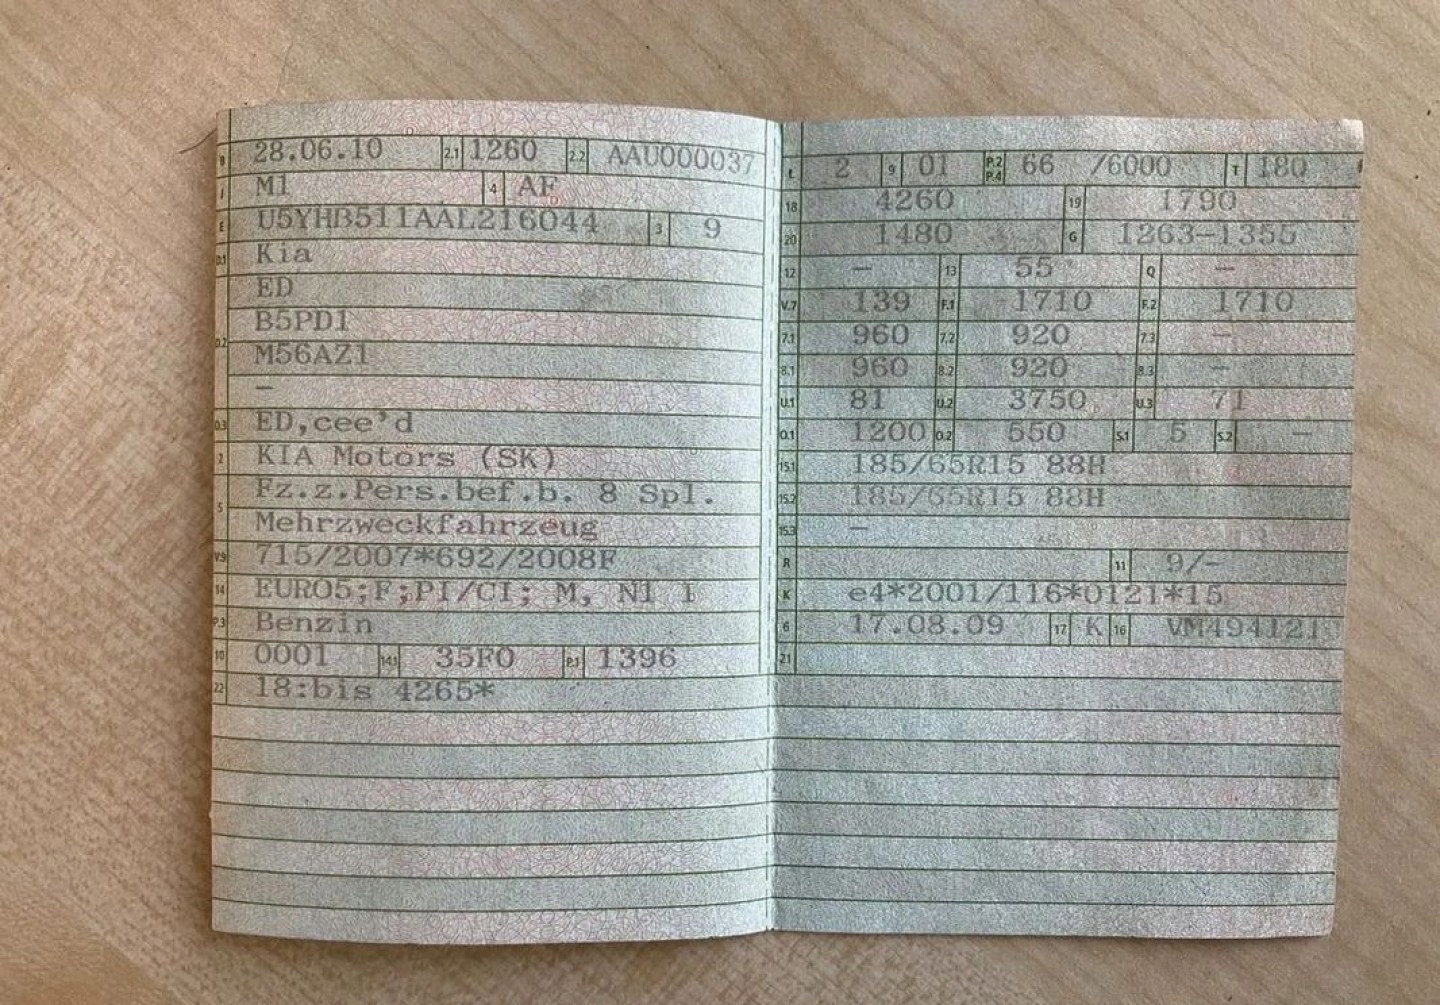 B 28.06.10 2.1 1260 2.2 AAU000037
J M1 4 AF
E U5YHB511AAL216044 3 9
D.1 Kia
ED
B5PD1
D.2 M56AZ1
–
D.3 ED,cee'd
2 KIA Motors (SK)
Fz.z.Pers.bef.b. 8 Spl.
5 Mehrzweckfahrzeug
V.9 715/2007*692/2008F
14 EURO5;F;PI/CI; M, N1 I
P.3 Benzin
10 0001 14.1 35F0 P.1 1396
22 18:bis 4265*
L 2 9 01 P.2 P.4 66 /6000 T 180
18 4260 19 1790
20 1480 G 1263-1355
12 – 13 55 Q –
V.7 139 F.1 1710 F.2 1710
7.1 960 7.2 920 7.3 –
8.1 960 8.2 920 8.3 –
U.1 81 U.2 3750 U.3 71
O.1 1200 O.2 550 S.1 5 S.2 –
15.1 185/65R15 88H
15.2 185/65R15 88H
15.3 –
R 11 9/-
K e4*2001/116*0121*15
6 17.08.09 17 K 16 VM494121
21